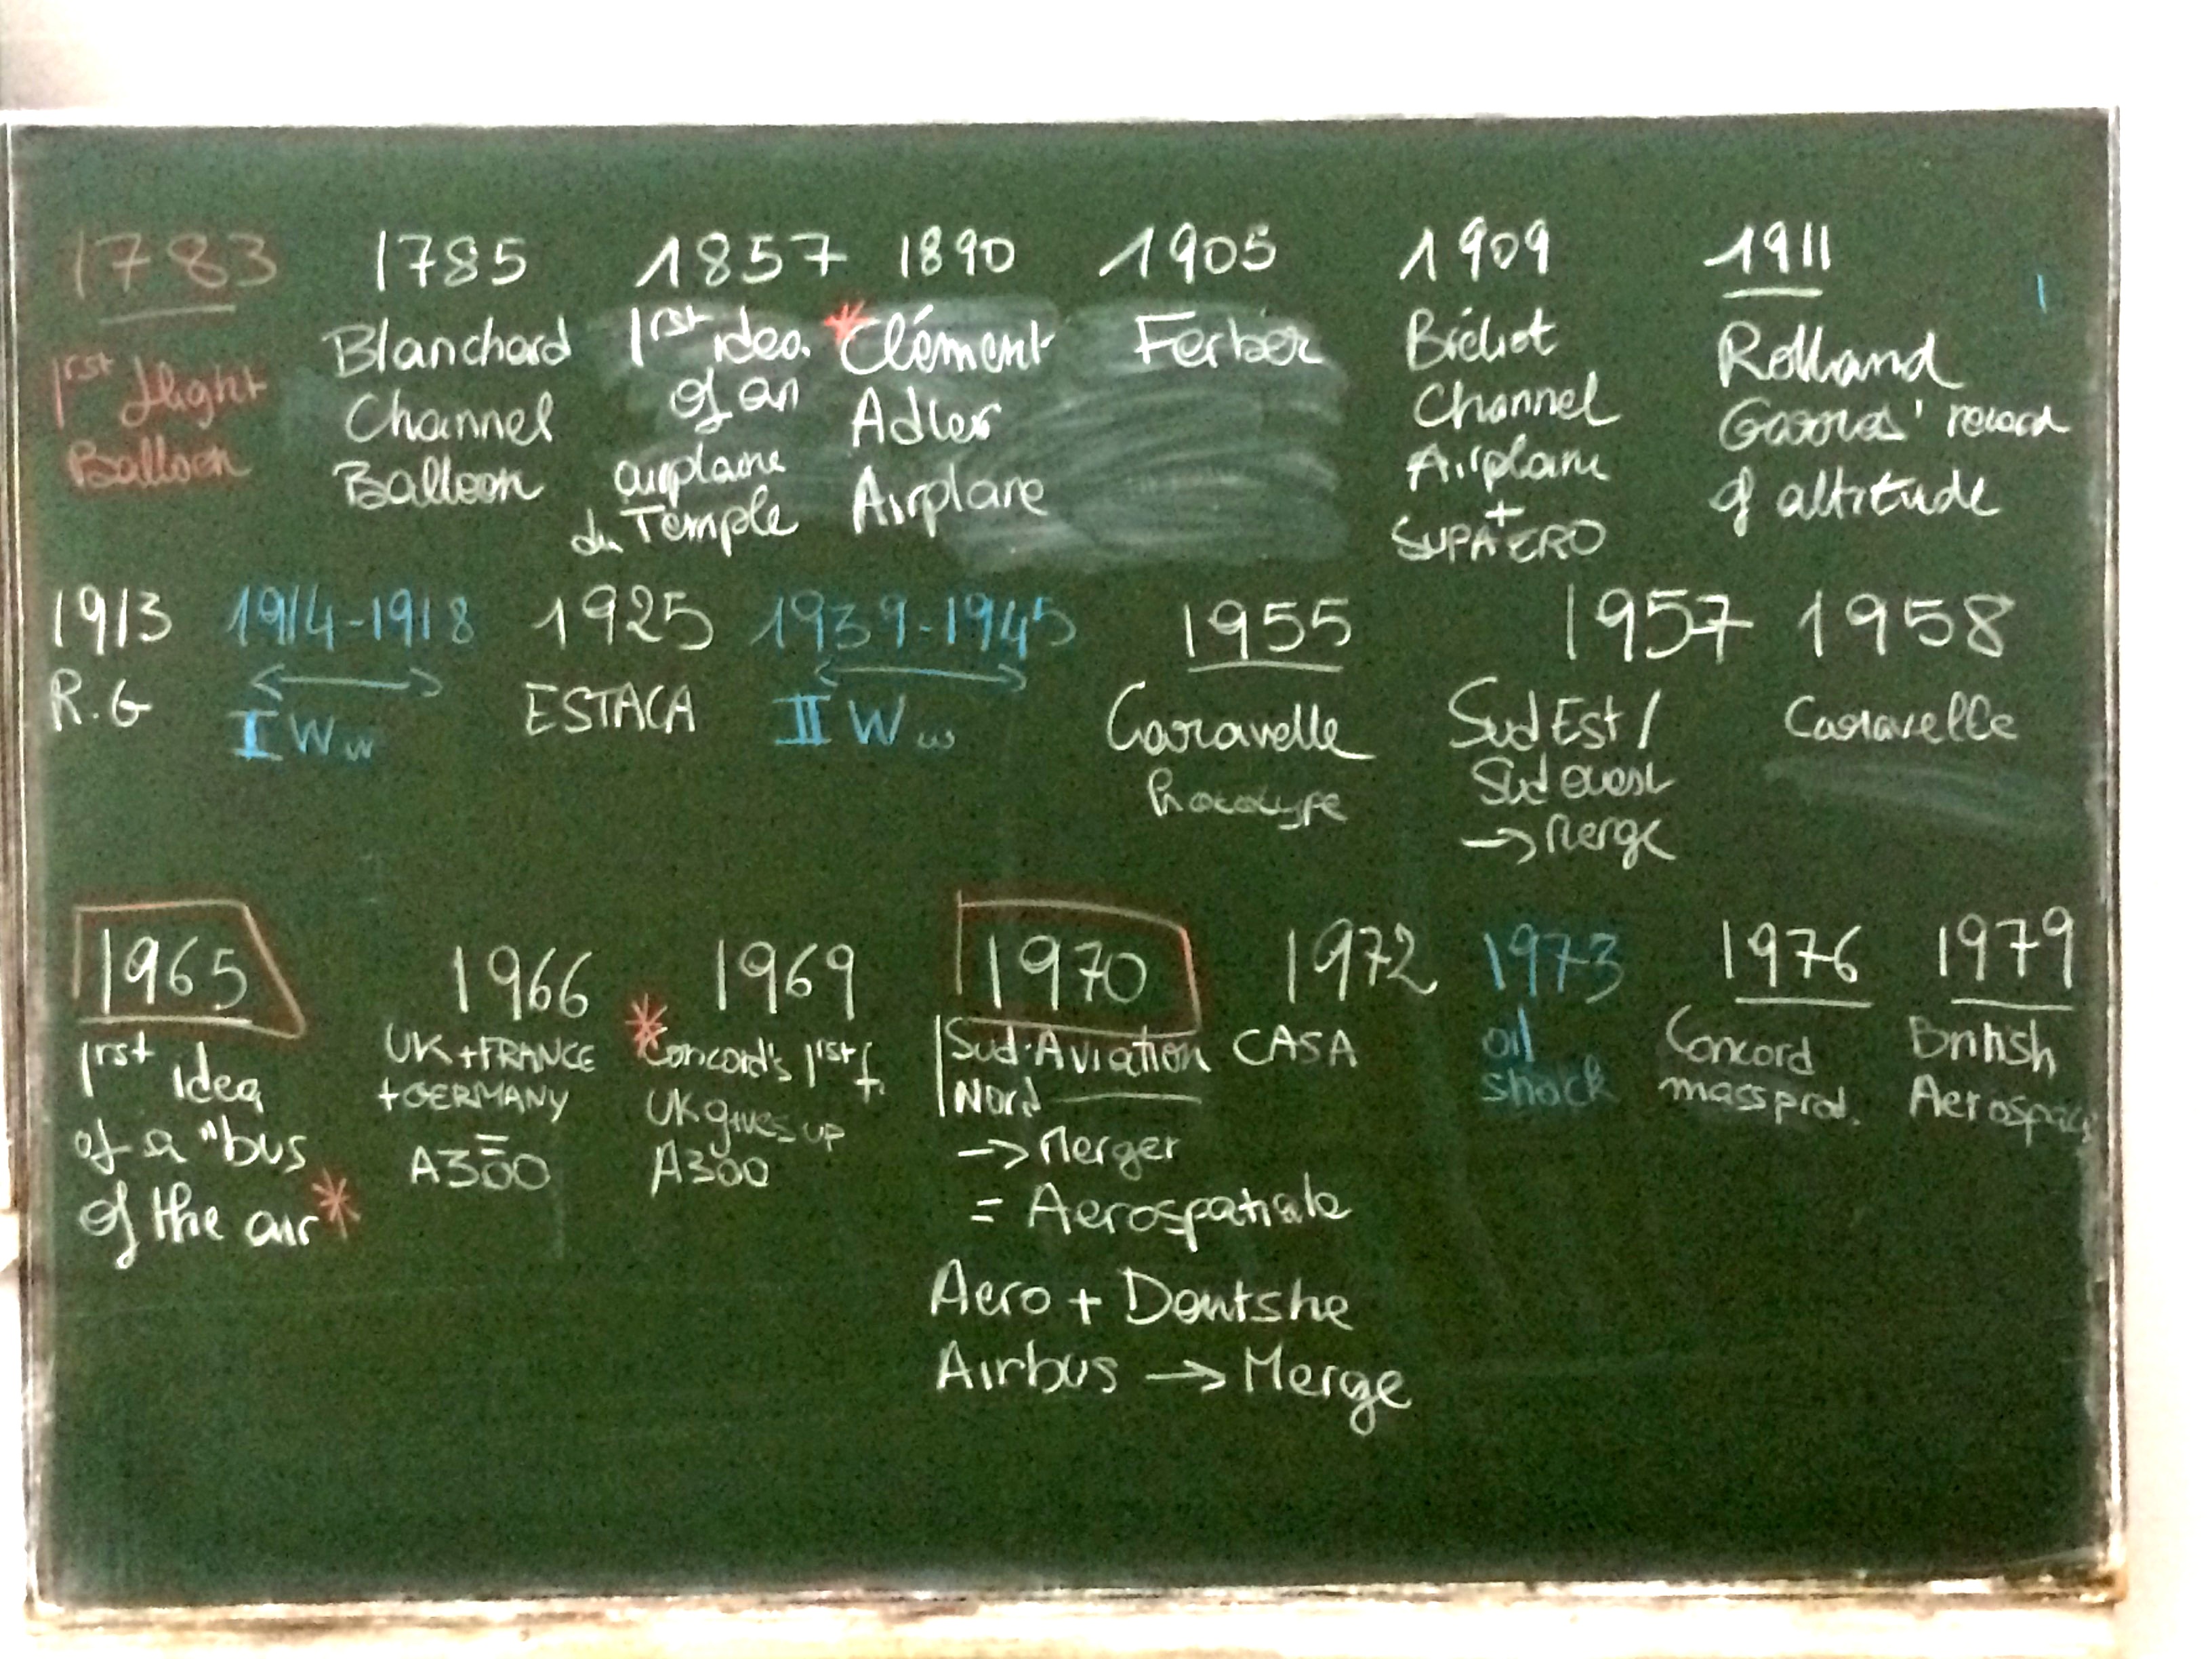 1783
1rst flight
Balloon
1785
Blanchard
Channel
Balloon
1857
1rst idea
of an
airplane
du Temple
1890
*Clément
Adler
Airplane
1905
Ferber
1909
Blériot
Channel
Airplane
+
SUPAERO
1911
Rolland
Garros' record
of altitude
1913
R.G
1914-1918
I WW
1925
ESTACA
1939-1945
II WW
1955
Caravelle
Prototype
1957
Sud Est /
Sud ouest
→ Merge
1958
Caravelle
1965
1rst idea
of a "bus
of the air*
1966
UK+FRANCE
+GERMANY
A300
1969
*Concord's 1rst f.
UK gives up
A300
1970
Sud-Aviation
Nord —
→ Merger
= Aerospatiale
Aero + Deutshe
Airbus → Merge
1972
CASA
1973
oil
shock
1976
Concord
mass prod.
1979
British
Aerospace